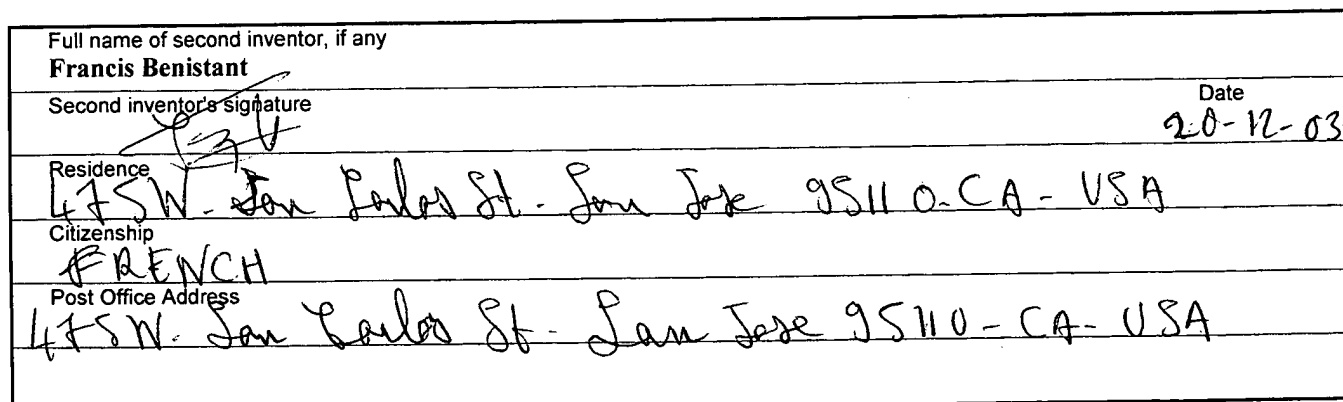 Full name of second inventor, if any
Francis Benistant
Second inventor's signature
Date
20-12-03
Residence
475 W. San Carlos St. San Jose 95110-CA-USA
Citizenship
FRENCH
Post Office Address
475 W. San Carlos St- San Jose 95110-CA-USA